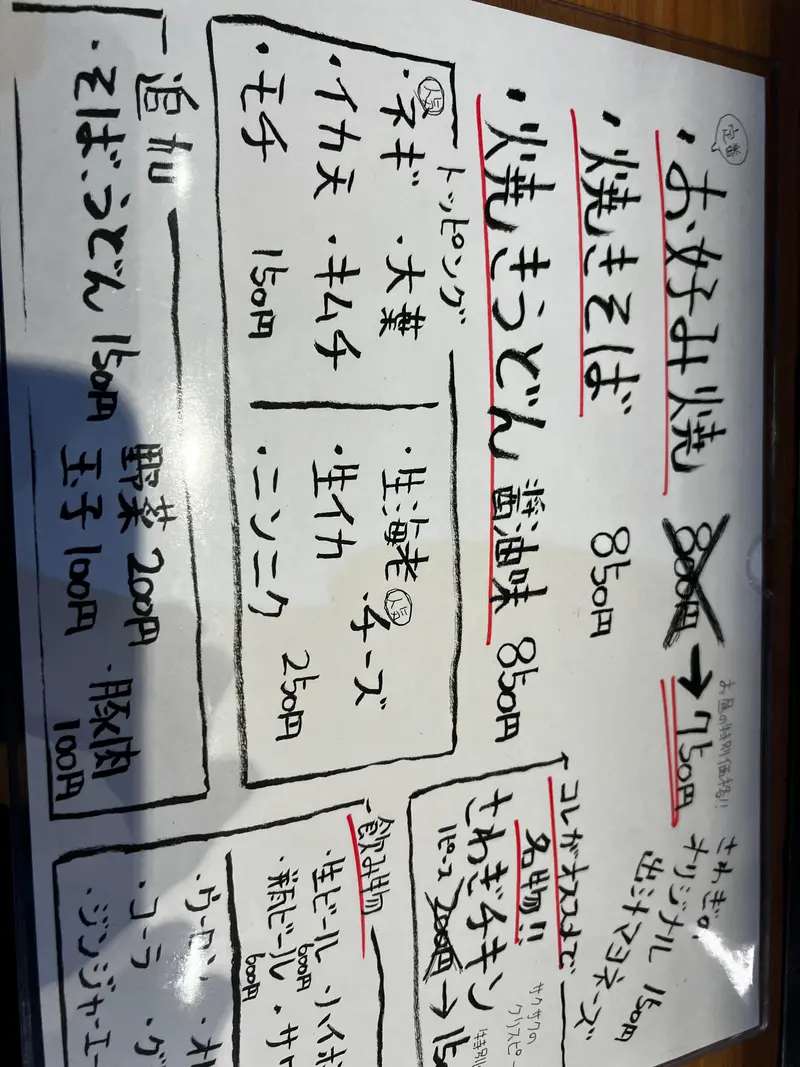 定番
・お好み焼 800円→750円
お昼の特別価格!!
・焼きそば 850円
・焼きうどん 醤油味 850円
さわぎの
オリジナル
出汁マヨネーズ 150円
トッピング
・ネギ 人気 ・大葉
・イカ天 ・キムチ
・モチ 150円
・生海老 ・チーズ 人気
・生イカ
・ニンニク 250円
追加
・そば・うどん 150円
野菜 200円
玉子 100円
・豚肉 100円
コレがオススメで
名物!!
さわぎチキン
サクサクの
クリスピー
1ピース 200円→15
特別
飲み物
・生ビール 600円
・瓶ビール 600円
・ウーロン
・コーラ
・ジンジャーエー